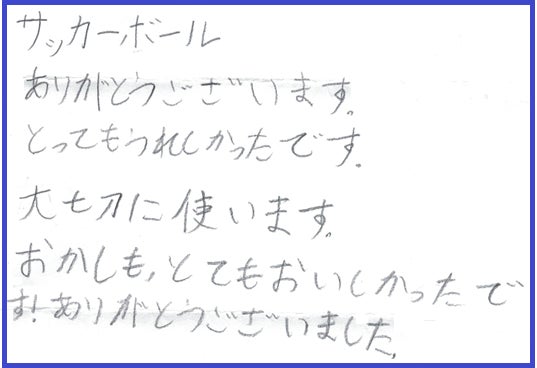 サッカーボール
ありがとうございます。
とってもうれしかったです。
大切に使います。
おかしも,とてもおいしかったで
す!ありがとうございました。